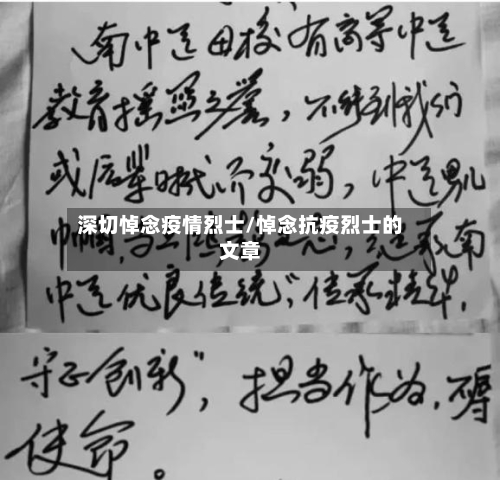 南中医母校有高等中医
教育摇篮之誉，不能到我们
或后辈时代所变弱，中医男儿
深切悼念疫情烈士/悼念抗疫烈士的
文章
巾帼，承南
中医优良传统，传承精华，
守正创新”，担当作为，不辱
使命。